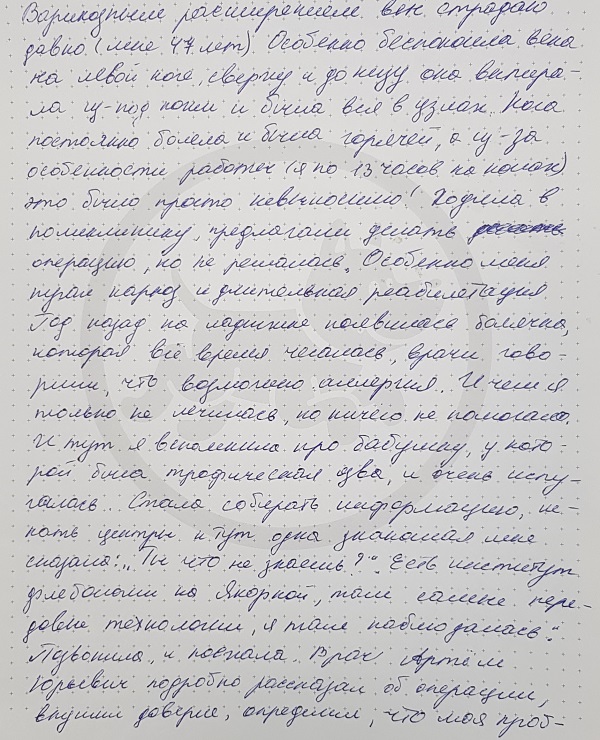 Варикозным расширением вен страдаю
давно (мне 47 лет). Особенно беспокоила вена
на левой ноге, сверху и до низу она выпира-
ла из-под кожи и была вся в узлах. Нога
постоянно болела и была горячей, а из-за
особенности работы (я по 13 часов на ногах)
это было просто невыносимо! Ходила в
поликлинику, предлагали делать
операцию, но не решалась. Особенно меня
пугал наркоз и длительная реабилитация
Год назад на лодыжке появилась болячка,
которая всё время чесалась, врачи гово-
рили, что возможно аллергия. И чем я
только не лечилась, но ничего не помогало.
И тут я вспомнила про бабушку, у кото-
рой была трофическая язва, и очень испу-
галась. Стала собирать информацию, ис-
кать центры и тут одна знакомая мне
сказала: "Ты что не знаешь?" Есть институт
флебологии на Якорной, там самые пере-
довые технологии, я там наблюдалась".
Позвонила и поехала. Врач Артём
Юрьевич подробно рассказал об операции,
внушил доверие, определил, что моя проб-